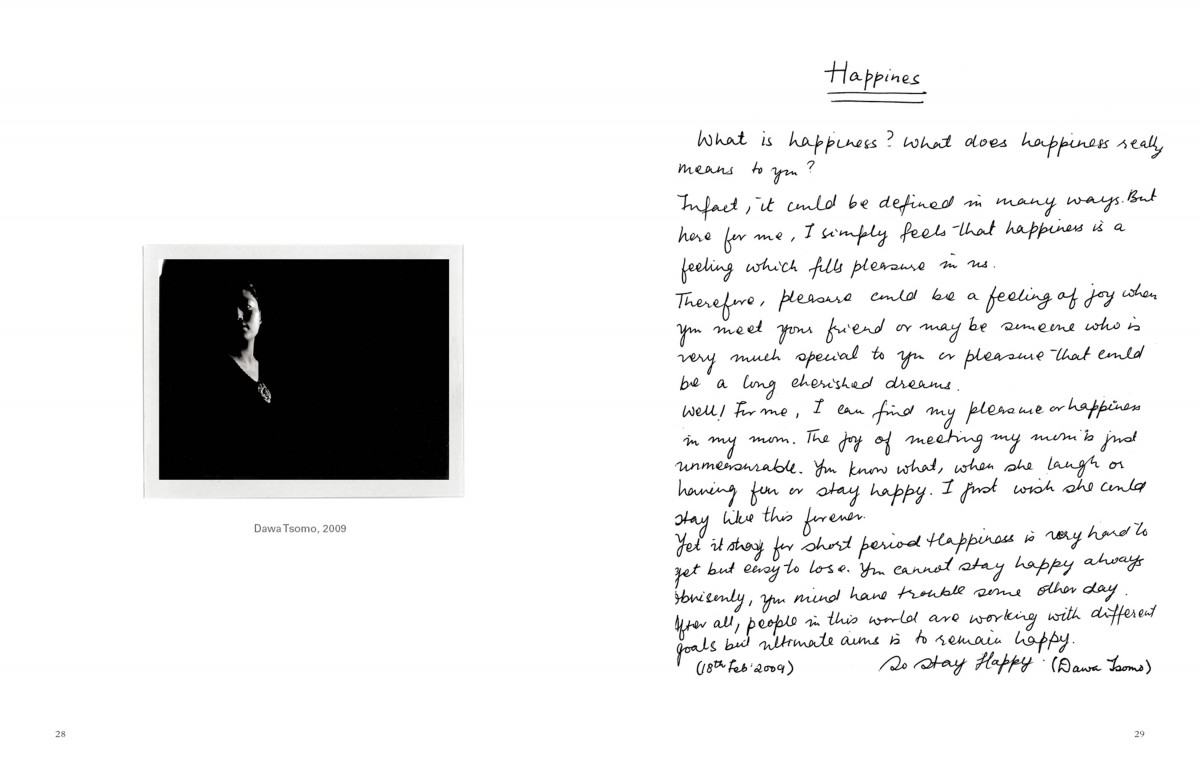 Dawa Tsomo, 2009
28
Happines
What is happiness? What does happiness really
means to you?
Infact, it could be defined in many ways. But
here for me, I simply feels that happiness is a
feeling which fills pleasure in us.
Therefore, pleasure could be a feeling of joy when
you meet your friend or may be someone who is
very much special to you or pleasure that could
be a long cherished dreams.
Well! For me, I can find my pleasure or happiness
in my mom. The joy of meeting my mom is just
unmeasurable. You know what, when she laugh or
having fun or stay happy. I just wish she could
stay like this forever.
Yet it stay for short period Happiness is very hard to
get but easy to lose. You cannot stay happy always
obvisenly, you mind have trouble some other day.
After all, people in this world are working with different
goals but ultimate aims is to remain happy.
(18th Feb' 2009) So stay Happy. (Dawa Tsomo)
29